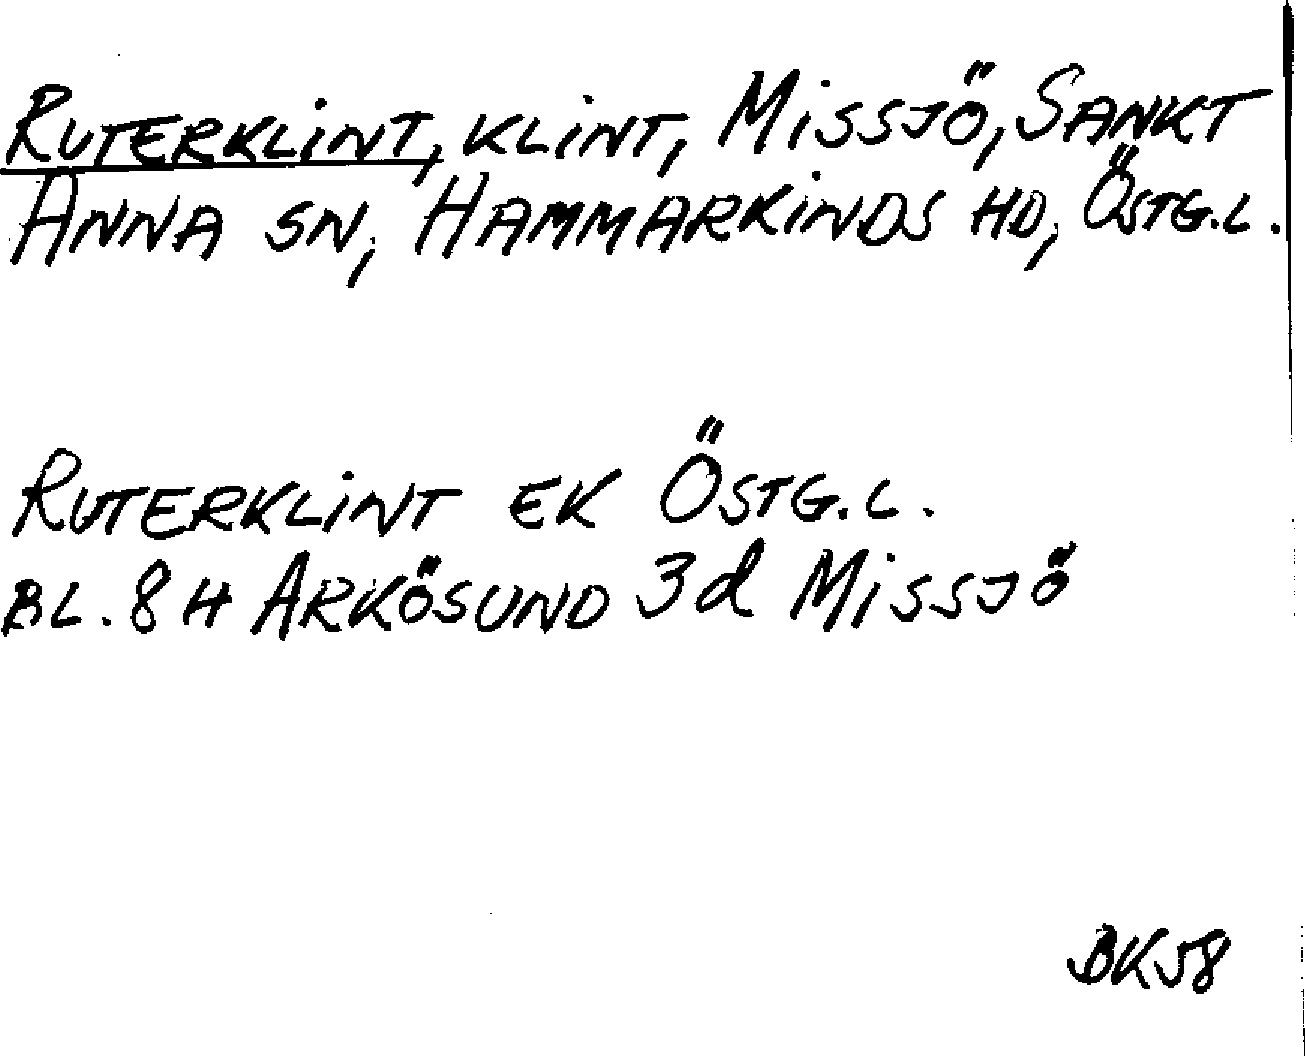 RUTERKLINT, KLINT, MISSJÖ, SANKT
ANNA SN, HAMMARKINDS HD, ÖSTG.L.
RUTERKLINT EK ÖSTG.L.
BL. 8 H ARKÖSUND 3d MISSJÖ
BK58